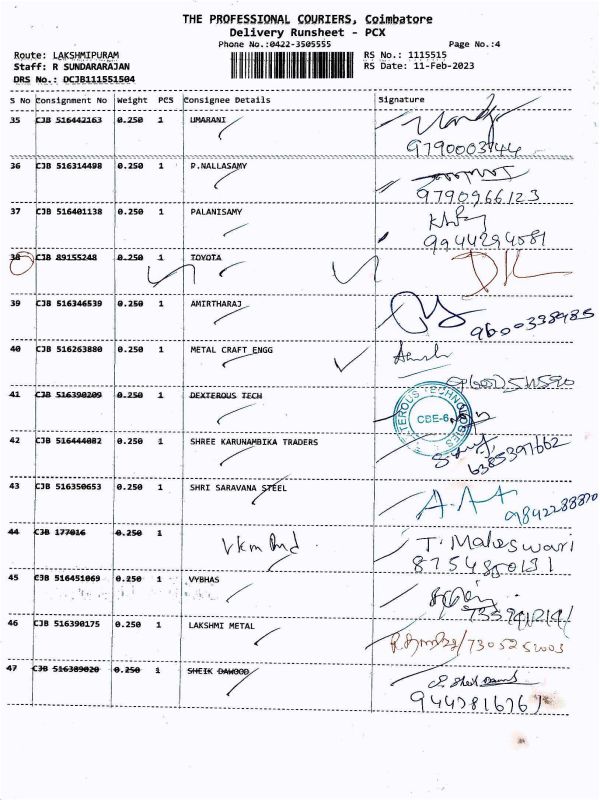 THE PROFESSIONAL COURIERS, Coimbatore
Delivery Runsheet - PCX
Phone No.:0422-3505555 Page No.:4
Route: LAKSHMIPURAM RS No.: 1115515
Staff: R SUNDARARAJAN RS Date: 11-Feb-2023
DRS No.: DCJB111551504
S No Consignment No Weight PCS Consignee Details Signature
35 CJB 516442163 0.250 1 UMARANI
9790003744
36 CJB 516314498 0.250 1 P.NALLASAMY
9790966123
37 CJB 516401138 0.250 1 PALANISAMY
9944294581
38 CJB 89155248 0.250 1 TOYOTA
39 CJB 516346539 0.250 1 AMIRTHARAJ
9600338985
40 CJB 516263880 0.250 1 METAL CRAFT ENGG
41 CJB 516390209 0.250 1 DEXTEROUS TECH
CBE-6
42 CJB 516444082 0.250 1 SHREE KARUNAMBIKA TRADERS
6385397662
43 CJB 516350653 0.250 1 SHRI SARAVANA STEEL
9842288870
44 CJB 177016 0.250 1 T. Maleswari
8754880131
45 CJB 516451069 0.250 1 VYBHAS
46 CJB 516390175 0.250 1 LAKSHMI METAL
47 CJB 516389020 0.250 1 SHEIK DAWOOD